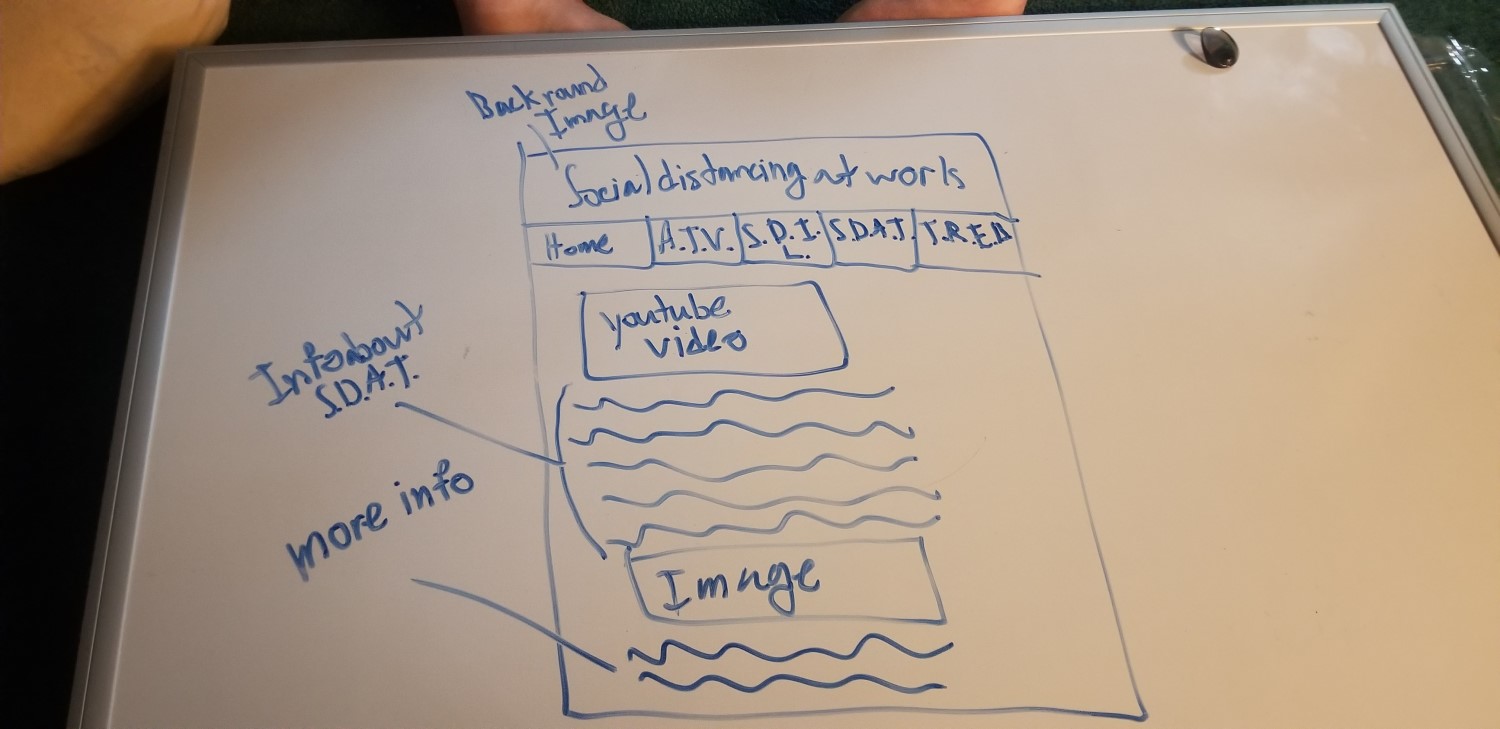 Backround
Image
Social distancing at work
Home
A.T.V.
S.D.I.
L.
S.D.A.T.
T.R.E.D
youtube
video
Info about
S.D.A.T.
more info
Image